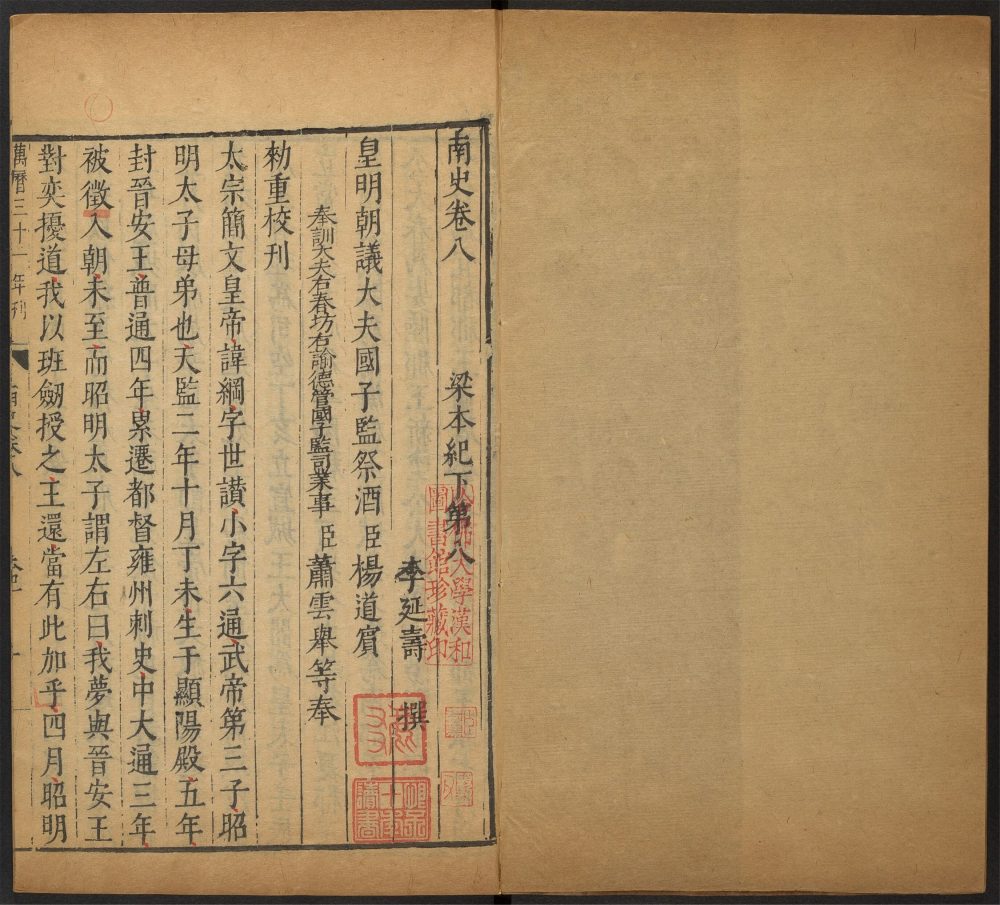 南史卷八　梁本紀下第八
李延壽　撰
皇明朝議大夫國子監祭酒臣楊道賓
奉訓大夫右春坊右諭德管國子監司業事臣蕭雲舉等奉
勑重校刊
太宗簡文皇帝諱綱字世讃小字六通武帝第三子昭
明太子母弟也天監二年十月丁未生于顯陽殿五年
封晉安王普通四年累遷都督雍州刺史中大通三年
被徵入朝未至而昭明太子謂左右曰我夢與晉安王
對奕擾道我以班劒授之王還當有此加乎四月昭明
萬曆三十一年刊
南史卷八
哈佛大學漢和
圖書館珍藏印